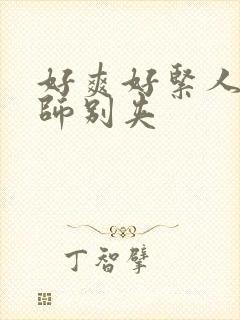 好爽好紧人
师别夹
丁智擘